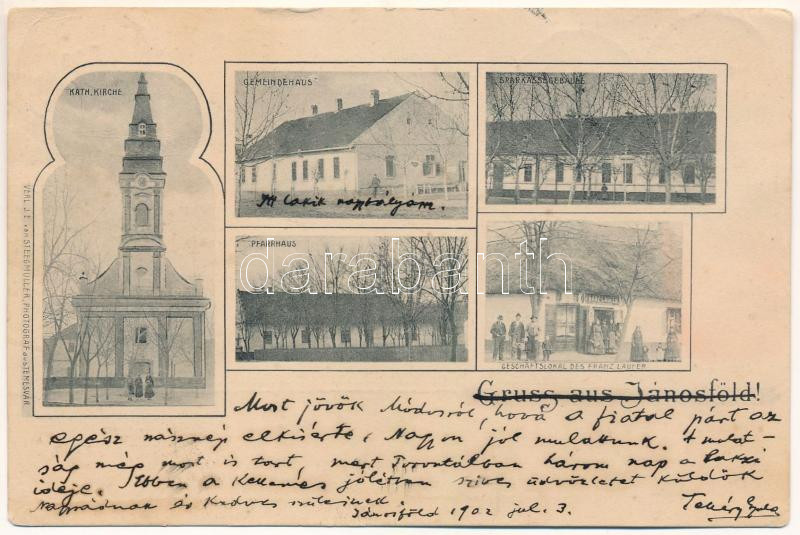 KATH. KIRCHE
GEMEINDEHAUS
SPARKASSEGEBÄUDE
Itt lakik nagybátyám.
PFARRHAUS
darabanth
GESCHÄFTSLOKAL DES FRANZ LAUFER
VERL. J. E. STEEGMÜLLER, PHOTOGRAF aus TEMESVÁR
Gruss aus Jánosföld!
Most jövök Módosról, hová a fiatal párt az
egész násznép elkisérte. Nagyon jól mulattunk. A mulat-
ság még most is tart mert Torontálban három nap a lakzi
ideje. Ebben a kellemes jólétben szives üdvözletet küldök
Nagyságodnak és kedves szüleinek.
Jánosföld 1902 júl. 3.